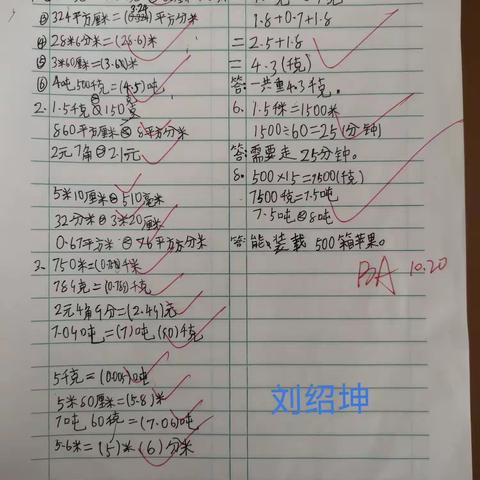 ③ 324平方厘米=(3.24)平方分米
④ 28米6分米=(28.6)米
⑤ 3米60厘米=(3.60)米
⑥ 4吨500千克=(4.5)吨
2. 1.5千克 150克
860平方厘米 8平方分米
2元7角 2.1元
5米10厘米 510毫米
32分米 3米20厘米
0.67平方米 76平方分米
3. 750米=(0.750)千米
784克=(0.784)千克
2元4角4分=(2.44)元
7.04吨=(7)吨(40)千克
5千克=(0.005)吨
5米80厘米=(5.8)米
7吨60千克=(7.06)吨
5.6米=(5)米(6)分米
1.8+0.7+1.8
=2.5+1.8
=4.3(千克)
答:一共重4.3千克。
6. 1.5千米=1500米
1500÷60=25(分钟)
答:需要走25分钟。
8. 500×15=7500(千克)
7500千克=7.5吨
7.5吨 8吨
答:能装载500箱苹果。
10.20
刘绍坤